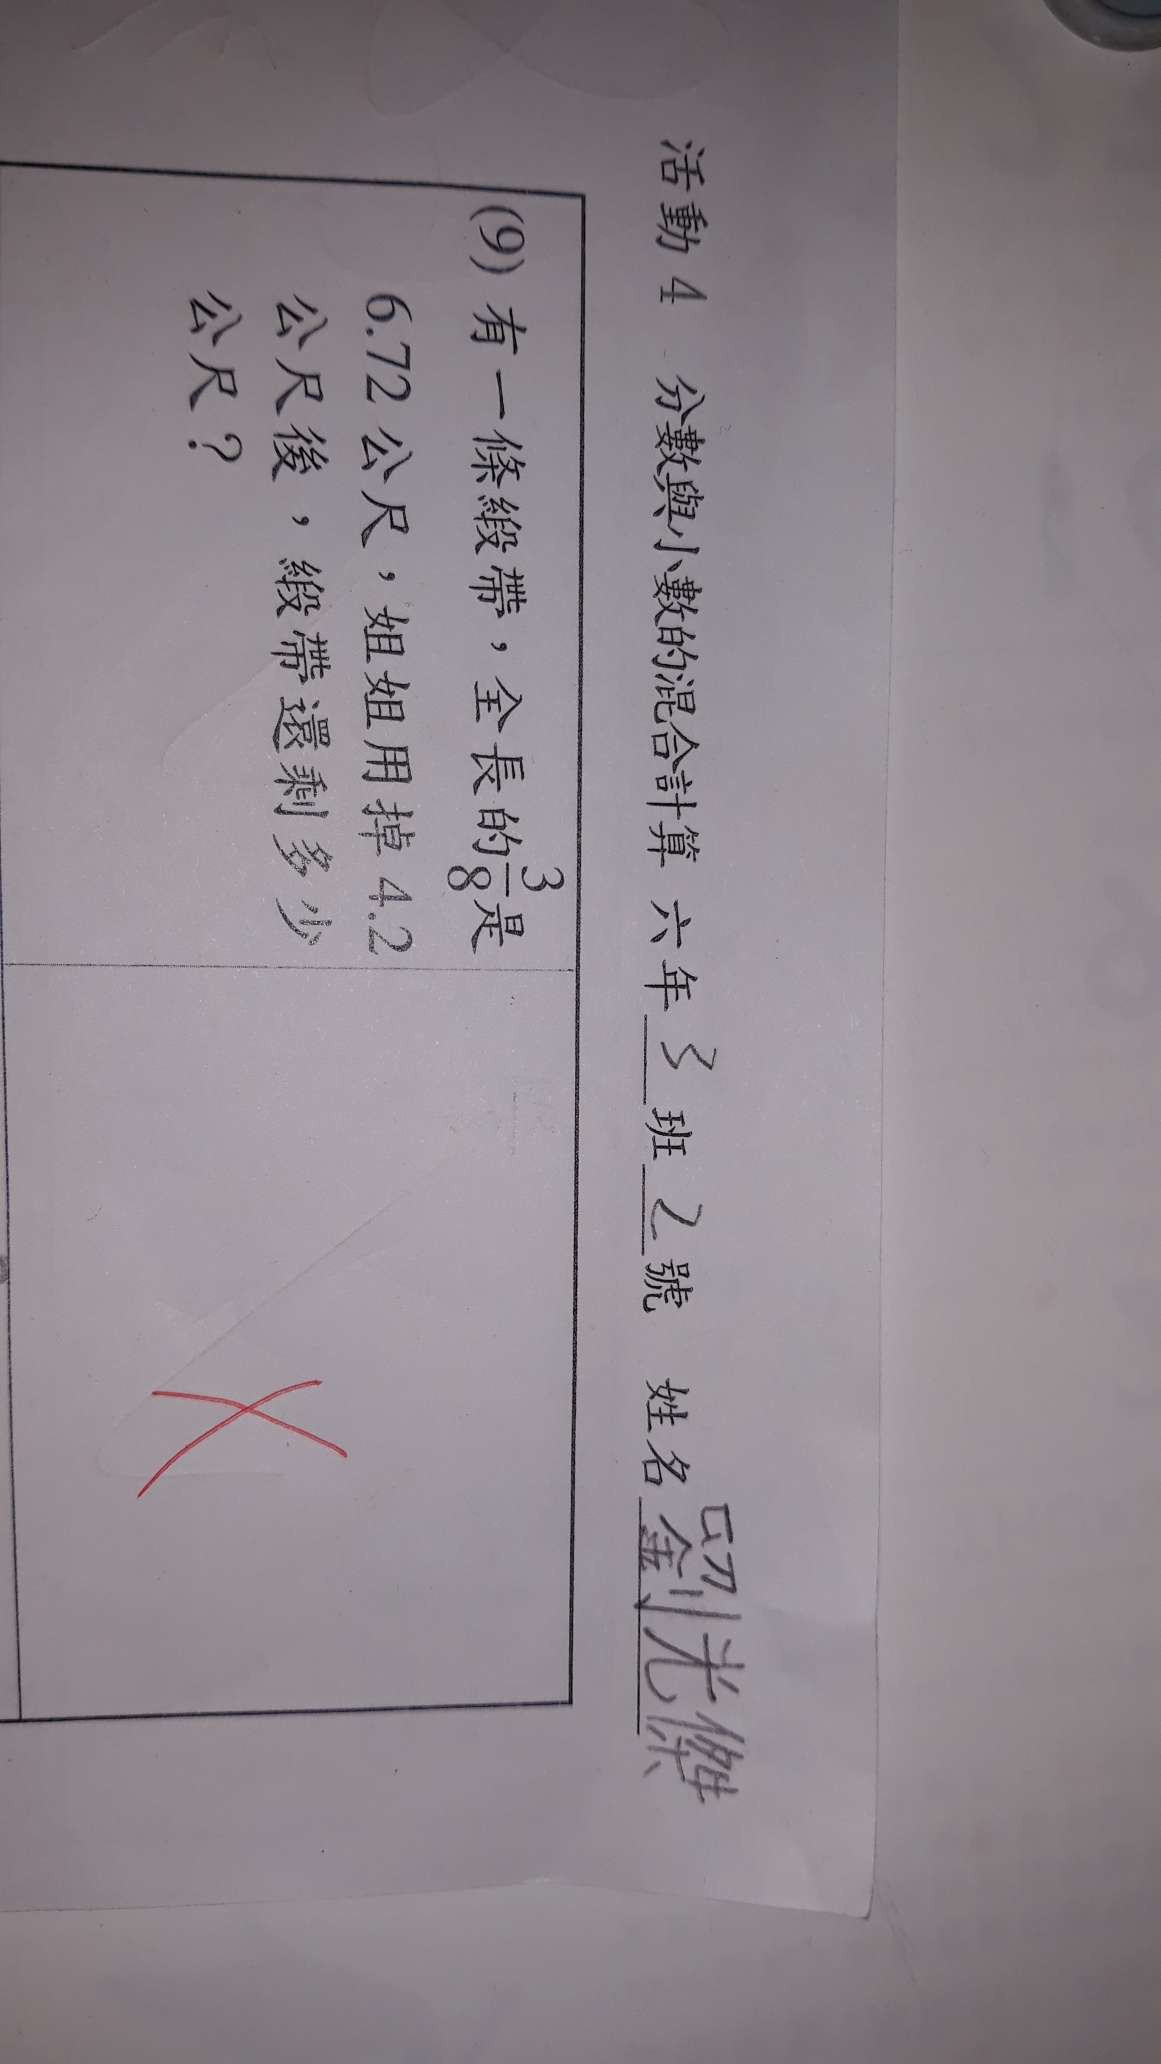 活動4 分數與小數的混合計算 六年3班2號 姓名劉光傑
(9) 有一條緞帶，全長的3/8是
6.72公尺，姐姐用掉4.2
公尺後，緞帶還剩多少
公尺？